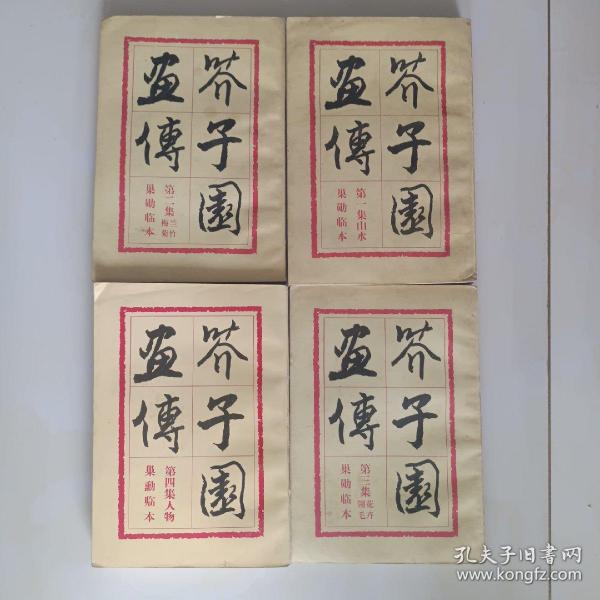 芥子園
畫傳
第二集 兰竹
梅菊
巢勋临本
芥子園
畫傳
第一集山水
巢勋临本
芥子園
畫傳
第四集人物
巢勳临本
芥子園
畫傳
第三集 花卉
翎毛
巢勋临本
孔夫子旧书网
www.kongfz.com